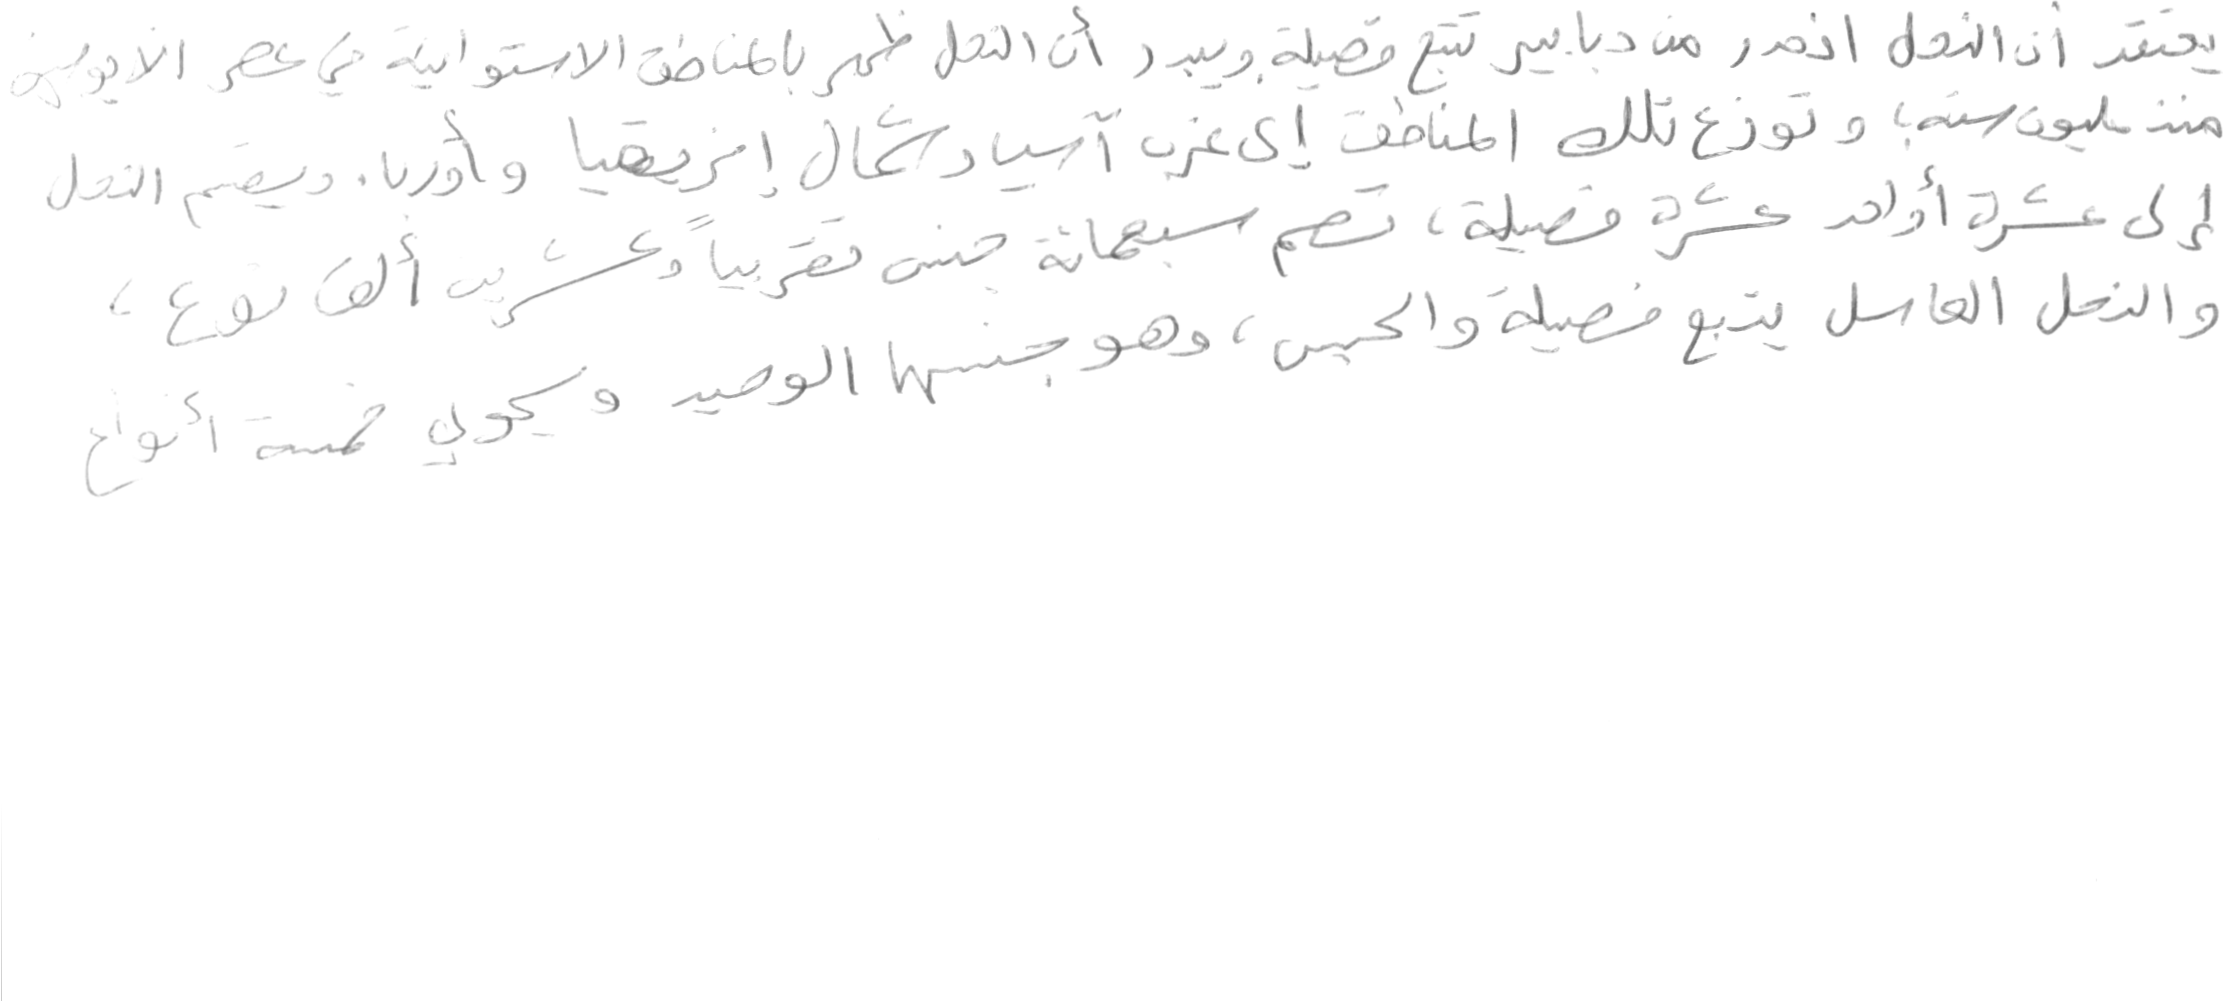 يعتقد أن النحل انحدر من دبابير تتبع فصيلة. ويبدو أن النحل ظهر بالمناطق الاستوائية في عصر الأيوسين
منذ مليون سنة، وتوزع تلك المناطق إلى غرب آسيا وشمال إفريقيا وأوربا. ويقسم النحل
إلى عشرة أو احد عشرة فصيلة، تضم سبعمائة جنس تقريباً وعشرين ألف نوع،
والنحل العاسل يتبع فصيلة، وهو جنسها الوحيد ويحوي خمسة أنواع